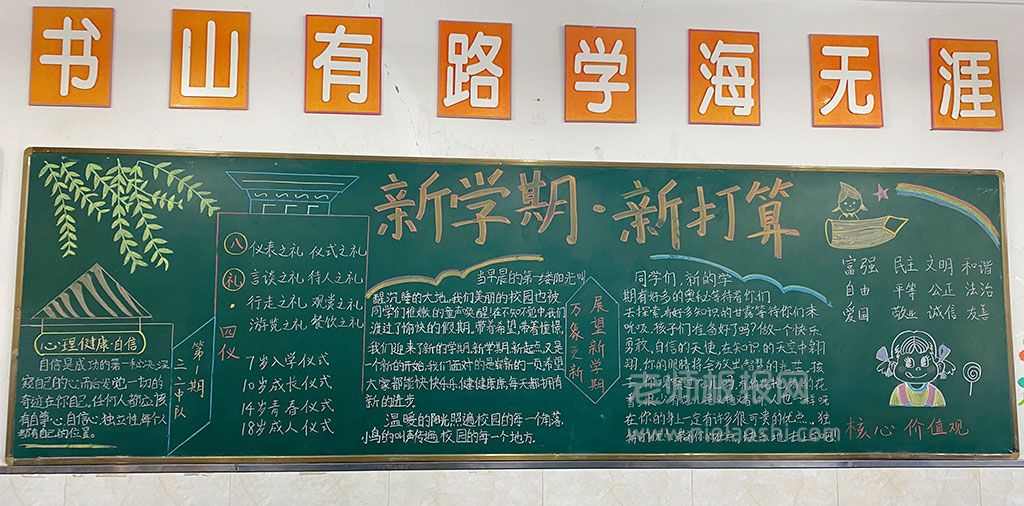 书山有路学海无涯
新学期·新打算
心理健康·自信
自信是成功的第一秘决,深
寂自己的心灵后发觉一切的
奇迹在你自己,任何人都应该
有自尊心、自信心、独立性
都有自己的位置。
第1期
三二中队
八礼·四仪
仪表之礼 仪式之礼
言谈之礼 待人之礼
行走之礼 观赏之礼
游览之礼 餐饮之礼
7岁入学仪式
10岁成长仪式
14岁青春仪式
18岁成人仪式
当早晨的第一缕阳光叫
醒沉睡的大地,我们美丽的校园也被
同学们稚嫩的童声唤醒!在不知不觉中我们
渡过了愉快的假期,带着希望,带着憧憬,
我们迎来了新的学期,新学期,新起点,又是
一个新的开始,我们面对的是崭新的一页,希望
大家都能快快乐乐,健健康康,每天都拥有
新的进步
温暖的阳光照遍校园的每一个角落,
小鸟的叫声传遍校园的每一个地方。
展望新学期
万象更新
同学们,新的学
期有好多的奥秘等待着你们
去探索,有好多知识的甘露等待你们来
吮吸,孩子们准备好了吗?做一个快乐、
勇敢、自信的天使,在知识的天空中翱
翔,你的眼睛将会放出智慧的光芒,孩
在你的身上一定有许多很可贵的优点、独
富强 民主 文明 和谐
自由 平等 公正 法治
爱国 敬业 诚信 友善
核心价值观
老师板报网